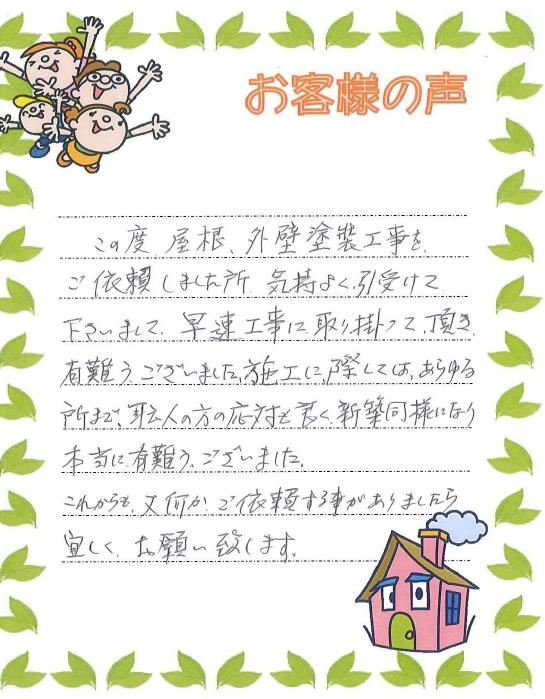 お客様の声
この度、屋根、外壁塗装工事を
ご依頼しました所、気持よく引受けて
下さいまして、早速工事に取り掛って、頂き
有難うございました。施工に際しては、あらゆる
所まで、職人の方の応対も良く、新築同様になり
本当に有難うございました。
これからも、又何かご依頼する事がありましたら
宜しく、お願い致します。